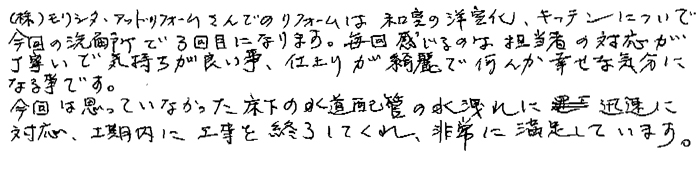 (株)モリシタ・アット・リフォームさんでのリフォームは和室の洋室化、キッチンについで
今回の洗面所で3回目になります。毎回感じるのは担当者の対応が
丁寧いで気持ちが良い事、仕上りが綺麗で何んか幸せな気分に
なる事です。
今回は思っていなかった床下の水道配管の水洩れに迅速に
対応、工期内に工事を終了してくれ、非常に満足しています。